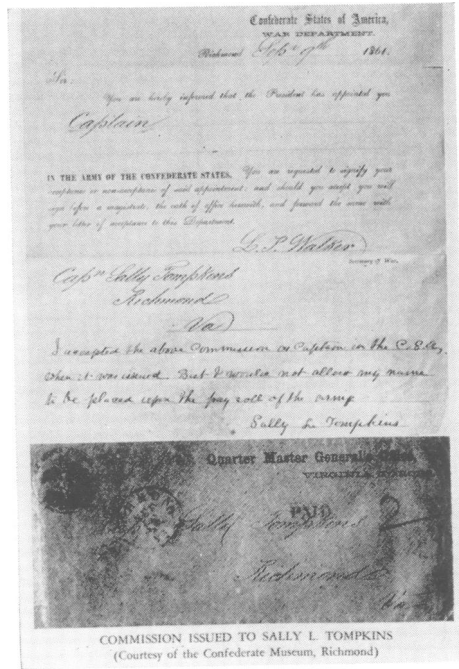 Confederate States of America,
WAR DEPARTMENT.
Richmond Sep. 9th 1861.
Sir:
You are hereby informed that the President has appointed you
Captain
IN THE ARMY OF THE CONFEDERATE STATES. You are requested to signify your
acceptance or non-acceptance of said appointment: and should you accept you will
sign before a magistrate, the oath of office herewith, and forward the same with
your letter of acceptance to this Department.
L. P. Walker
Secretary of War.
Capn Sally Tompkins
Richmond
Va
I accepted the above commission as Captain in the C.S.A.
when it was issued. But I would not allow my name
to be placed upon the pay roll of the army
Sally L. Tompkins
Quarter Master General's
VIRGINIA
PAID
2
Sally Tompkins
Richmond
Va
COMMISSION ISSUED TO SALLY L. TOMPKINS
(Courtesy of the Confederate Museum, Richmond)